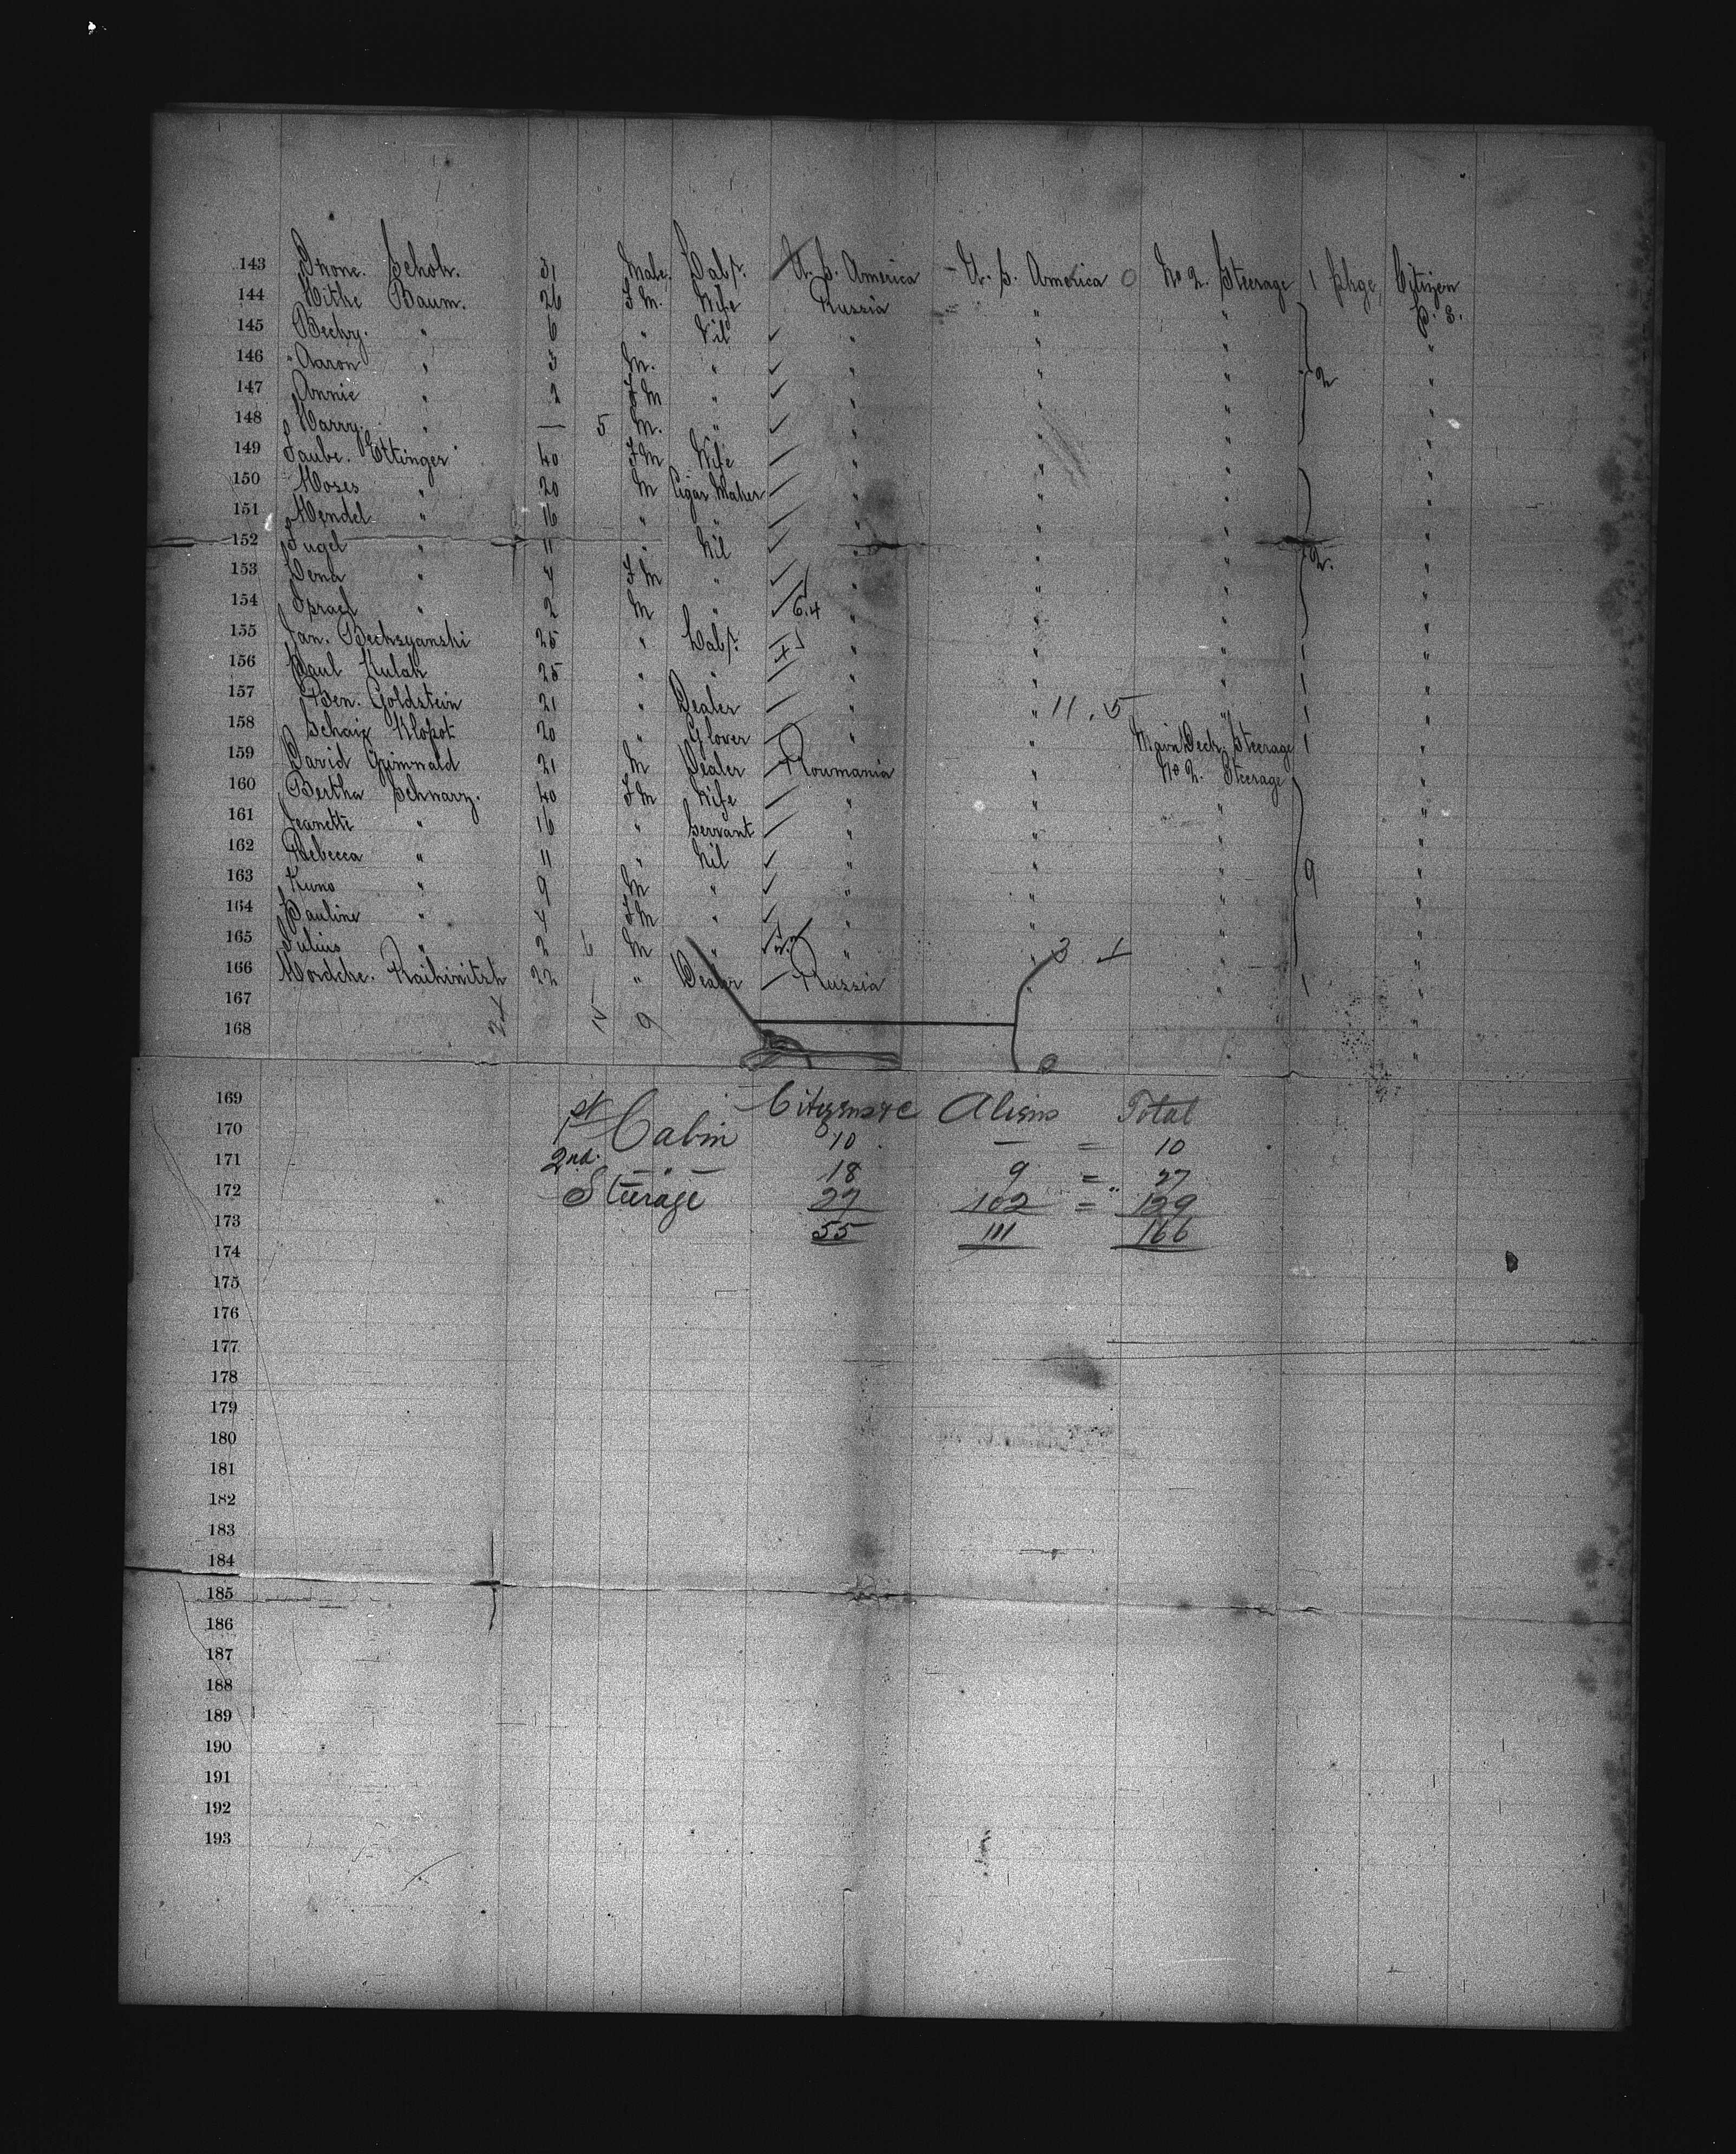 143 Schok. 31 Male. Lab^r. U. S. America - U. S. America O No 2. Steerage 1 pkge. Citizen
144 Baum. 26 F M. Wife Russia " " P. S.
145 Bechy. " 6 " Nil ✓ " " " "
146 Aaron " 3 M. " ✓ " " " 2 "
147 Annie " 2 F M " ✓ " " " "
148 Harry. " — 5 M. " ✓ " " " "
149 Taube. Ettinger 40 F M Wife " " " "
150 Moses " 20 M Cigar Maker " " " "
151 Mendel " 16 " " " " " "
152 " 11 " Nil ✓ " " " "
153 " 4 F M " ✓ " " " 2. "
154 Israel " 2 M " ✓ 6.4 " " " "
155 Jan. 25 " Lab^r. " " " 1 "
156 Paul Kulak 25 " " " " " 1 "
157 Ben. Goldstein 21 " Dealer " " 11.5 " 1 "
158 Klopot 20 " Glover " " Main Deck Steerage 1 "
159 David Grünwald 21 M Dealer Roumania " No 2. Steerage "
160 Bertha Schwarz. 40 F M Wife " " " "
161 Jeanette " 16 " Servant " " " "
162 Rebecca " 11 " Nil ✓ " " " "
163 Kuno " 9 M " ✓ " " " 9 "
164 Pauline " 4 F M " ✓ " " " "
165 Julius " 2 6 M " ✓ " " 3 1 " "
166 Mordche. 22 " Dealer Russia " " 1 "
167 "
168 9 "
169 Citizens Aliens Total
170 1st Cabin 10 — = 10
171 2nd. — " — 18 9 = 27
172 Steerage 27 102 = 129
173 55 111 166
174
175
176
177
178
179
180
181
182
183
184
185
186
187
188
189
190
191
192
193